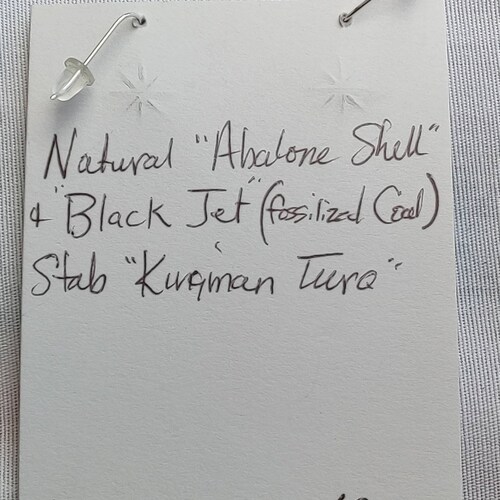 Natural "Abalone Shell"
& "Black Jet" (fossilized Coal)
Stab "Kingman Turq"